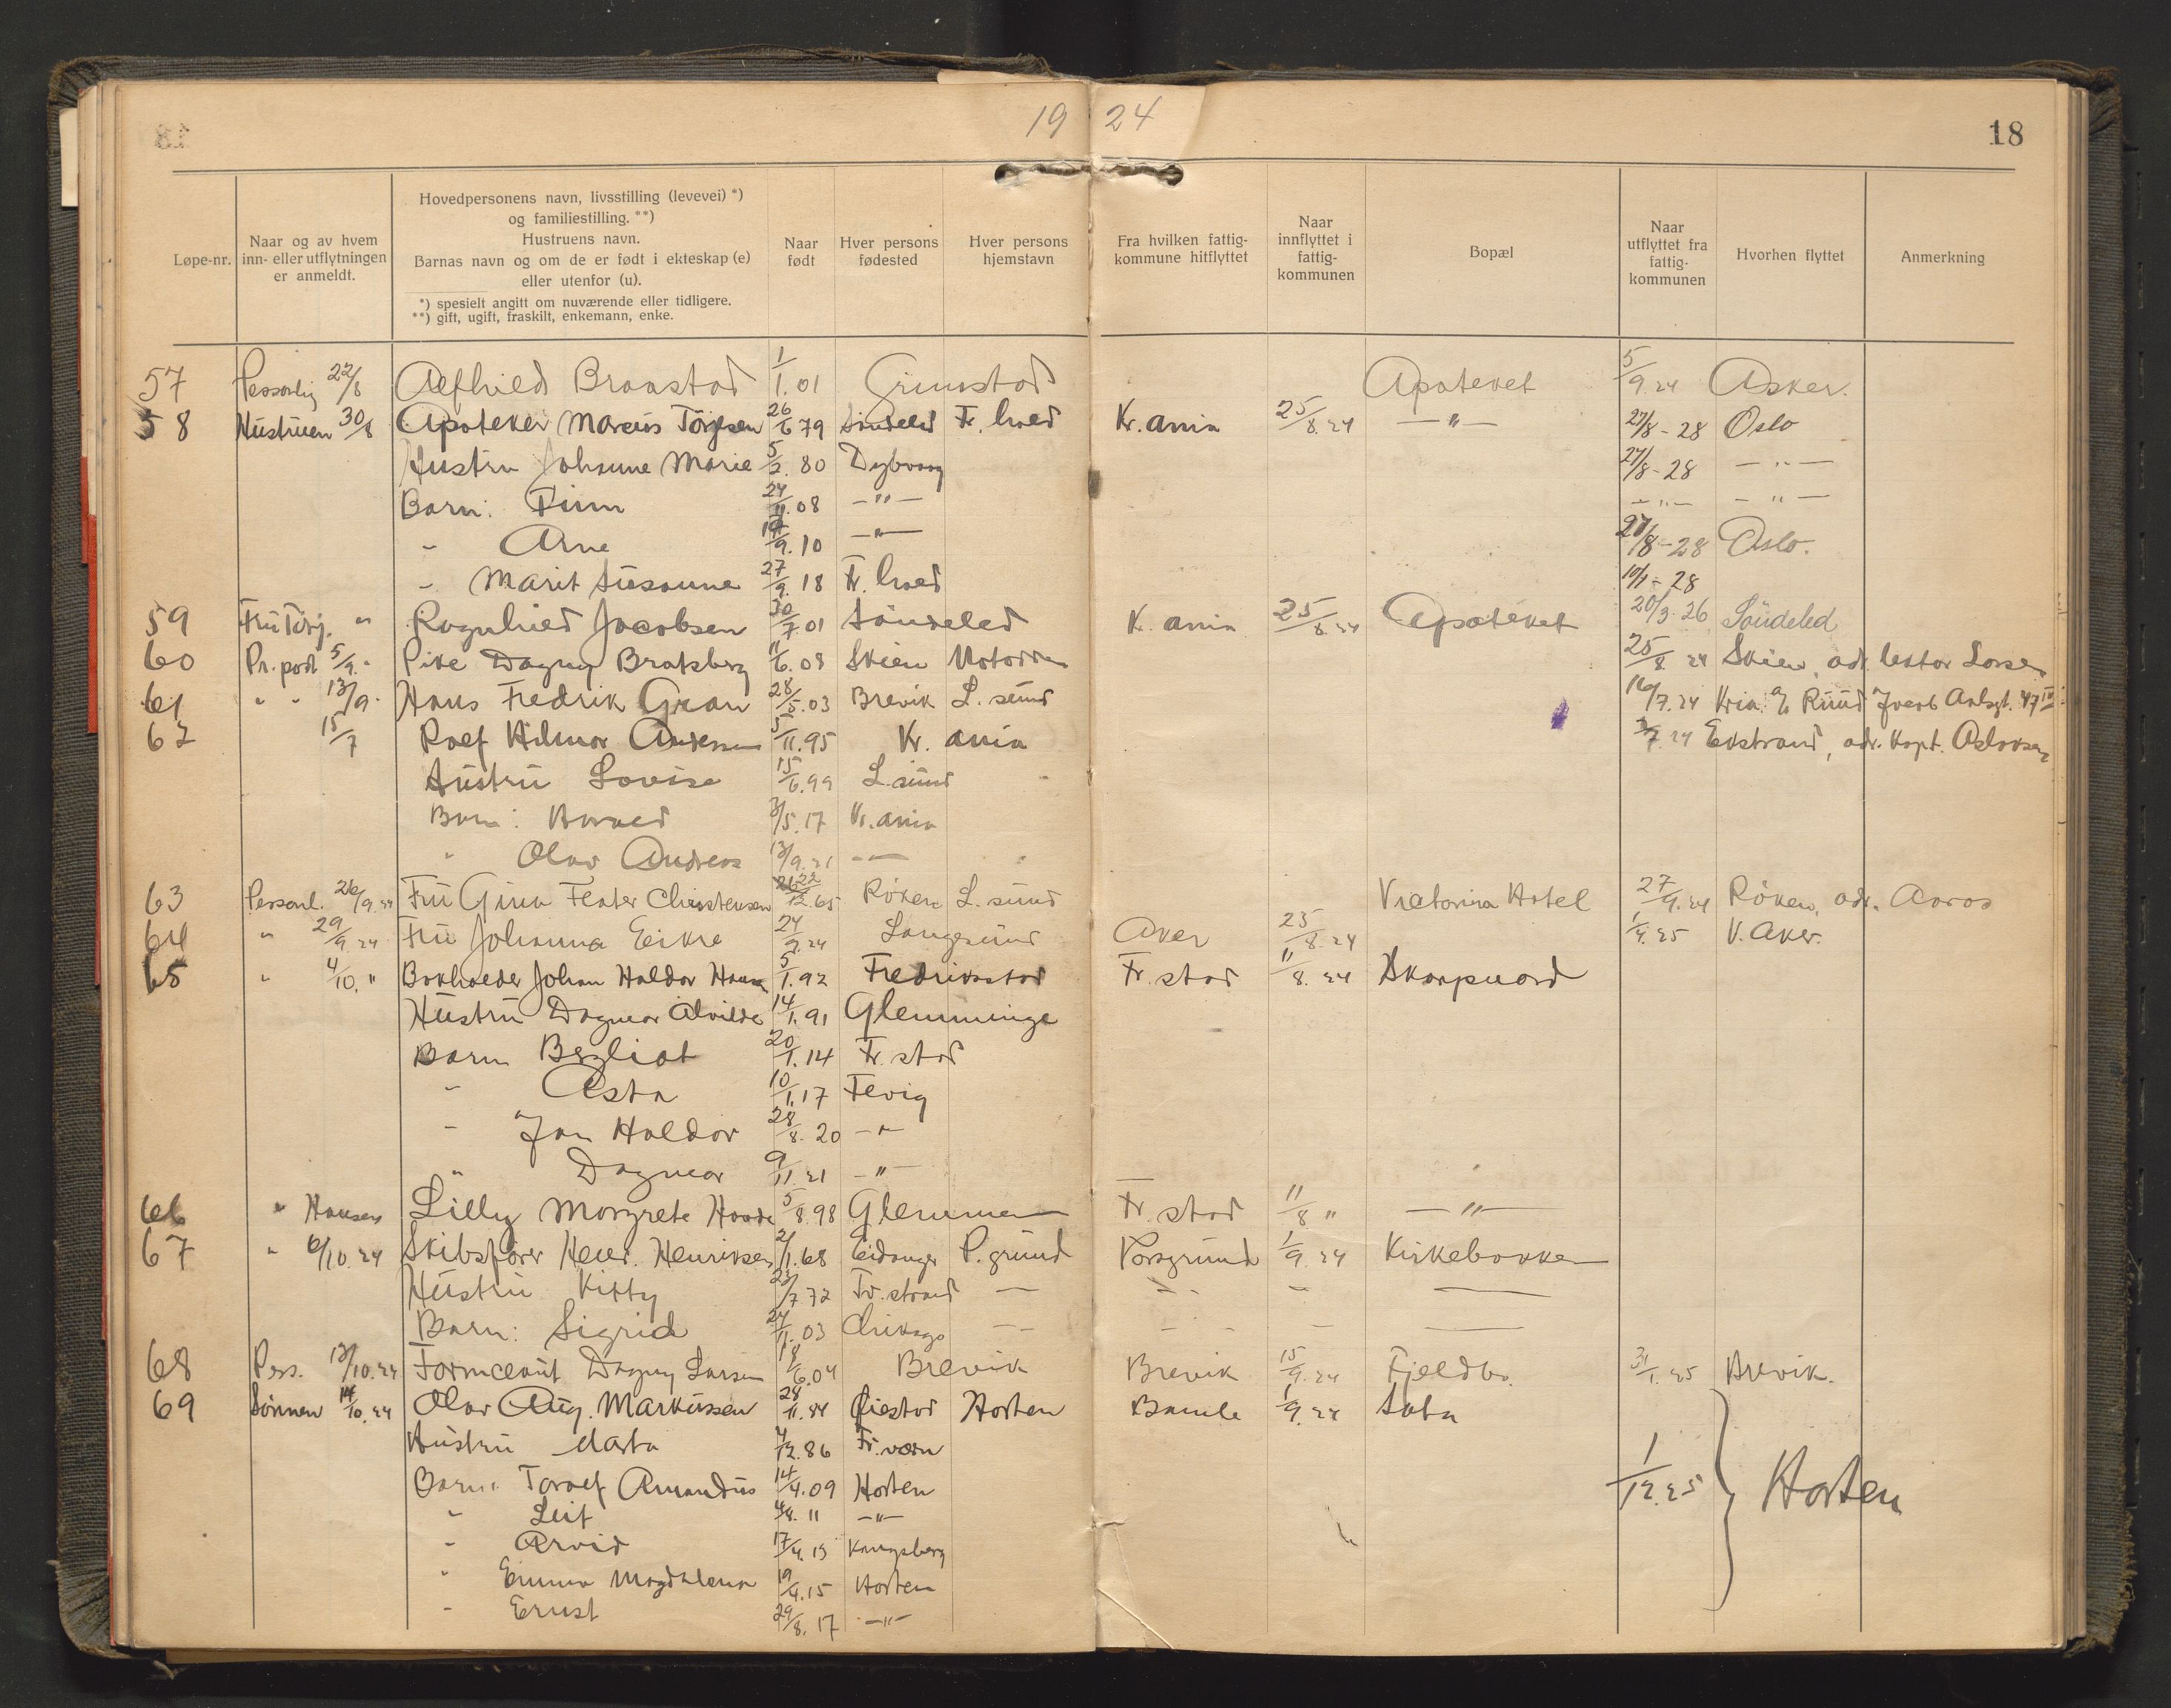 19 24
18
Løpe-nr. Naar og av hvem inn- eller utflytningen er anmeldt. Hovedpersonens navn, livsstilling (levevei) *) og familiestilling. **) Hustruens navn. Barnas navn og om de er født i ekteskap (e) eller utenfor (u). *) spesielt angitt om nuværende eller tidligere. **) gift, ugift, fraskilt, enkemann, enke. Naar født Hver persons fødested Hver persons hjemstavn Fra hvilken fattigkommune hitflyttet Naar innflyttet i fattigkommunen Bopæl Naar utflyttet fra fattigkommunen Hvorhen flyttet Anmerkning
57 Personlig 22/8 Alfhild Braastad 1/1.01 Grimstad Apoteket 5/9 24 Asker.
58 Hustruen 30/8 Apoteker Marcus Törjesen 26/6 79 Söndeled Fr. hald Kr.ania 25/8.24 —"— 27/8-28 Oslo
Hustru Johanne Marie 5/2. 80 Dybvaag 27/8-28 —"—
Barn: Finn 24/11.08 —"— —"— —"—
" Arne 19/9.10 —"— 27/8-28 Oslo.
" Marit Susanne 27/9. 18 Fr. hald 10/1-28
59 Fru Törj. " Ragnhild Jacobsen 30/7.01 Söndeled Kr.ania 25/8 24 Apoteket 20/3-26 Söndeled
60 Pr. post 5/9. Pike Dagny Bratsberg 11/6.08 Skien Notodden 25/8 24 Skien, adr. lektor Lossen
61 " " 13/9. Hans Fredrik Gran 28/5.03 Brevik L.sund 16/7.24 Kria. Ruud Jacob Aalsgt. 47 III
62 15/7 Rolf Hilmar Andersen 5/11.95 Kr.ania 3/7 24 Ekstrand, adr. Kapt. Aslaksen
Hustru Lovise 15/6.99 L.sund
Barn: Harald 3/5.17 Kr.ania
" Olav Anders 13/9.21 —"—
63 Personl. 26/9.24 Fru Gina Feater Christensen 22/12.65 Röken L.sund Victoria Hotel 27/9.24 Röken, adr. Aaros
64 " 29/9 24 Fru Johanna Eikre 24/9.24 Langesund Aker 25/8.24 1/4.25 V. Aker.
65 " 4/10. " Bokholder Johan Haldor Hansen 5/1.92 Fredrikstad Fr.stad 11/8.24 Skarpnord
Hustru Dagmar Alvilde 14/1.91 Glemminge
Barn Bergliot 20/1.14 Fr.stad
" Asta 10/1.17 Fevig
" Jan Haldor 28/8. 20 —"—
" Dagmar 9/11.21 —"—
66 " Hansen Lilly Margrete 5/8.98 Glemmen Fr.stad 11/8 " —"—
67 " 6/10.24 Skibsfører Henr. Henriksen 2/11.68 Eidanger P.grund Porsgrund 1/9.24 Kirkebakken
Hustru Kitty 23/7.72 Fr.strand — — — —
Barn: Sigrid 24/11.03 Chikago — — — —
68 Pers. 13/10.24 Dagny Larsen 18/6.04 Brevik Brevik 15/9.24 Fjeldbo. 31/1.25 Brevik.
69 Sönnen 14/10.24 Olav Aug. Markussen 28/11.84 Øiestad Horten Bamle 1/9.24 Salen
Hustru Marta 4/12.86 Fr.værn
Barn: Toralf Amandus 14/4.09 Horten 1/12.25 } Horten
" Leif 4/8.11 —"—
" Arvid 17/4.13 Kongsberg
" Emma Magdalena 19/4.15 Horten
" Ernst 29/8.17 —"—